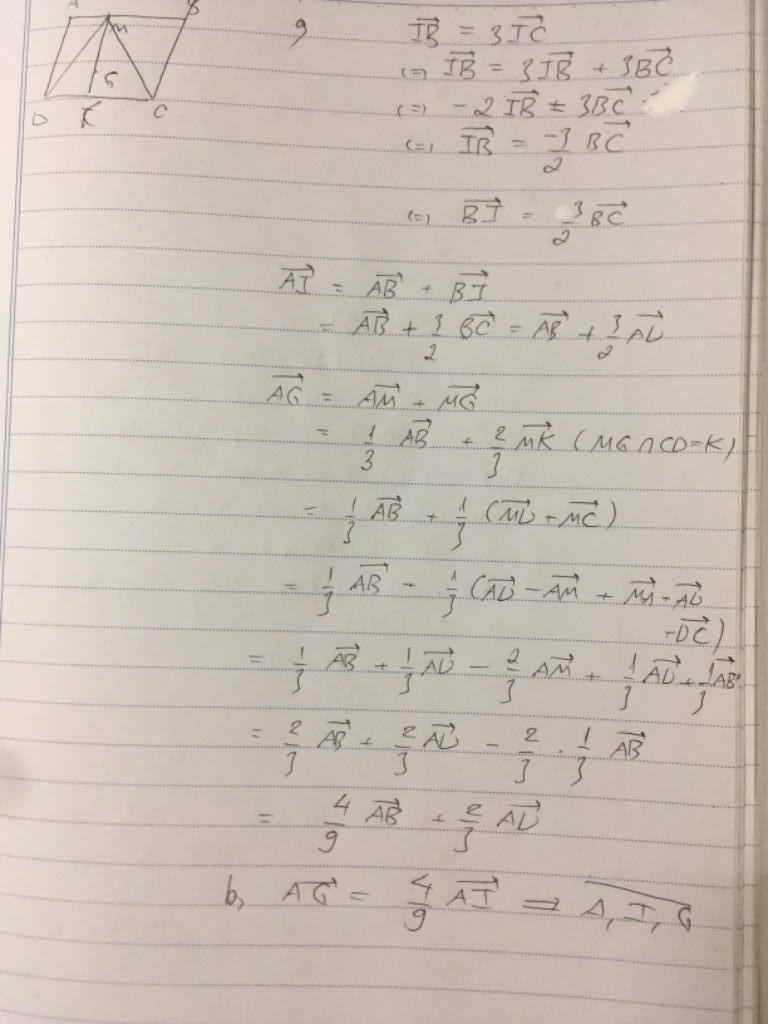 A B
M
G
D K C
a
$\overrightarrow{IB} = 3\overrightarrow{IC}$
(=) $\overrightarrow{IB} = 3\overrightarrow{IB} + 3\overrightarrow{BC}$
(=) $-2\overrightarrow{IB} = 3\overrightarrow{BC}$
(=) $\overrightarrow{IB} = \frac{-3}{2}\overrightarrow{BC}$
(=) $\overrightarrow{BI} = \frac{3}{2}\overrightarrow{BC}$
$\overrightarrow{AI} = \overrightarrow{AB} + \overrightarrow{BI}$
$= \overrightarrow{AB} + \frac{3}{2}\overrightarrow{BC} = \overrightarrow{AB} + \frac{3}{2}\overrightarrow{AD}$
$\overrightarrow{AG} = \overrightarrow{AM} + \overrightarrow{MG}$
$= \frac{1}{3}\overrightarrow{AB} + \frac{2}{3}\overrightarrow{MK}$ (MG ∩ CD = K)
$= \frac{1}{3}\overrightarrow{AB} + \frac{1}{3}(\overrightarrow{MD} + \overrightarrow{MC})$
$= \frac{1}{3}\overrightarrow{AB} + \frac{1}{3}(\overrightarrow{AD} - \overrightarrow{AM} + \overrightarrow{MA} + \overrightarrow{AD}$
$+ \overrightarrow{DC})$
$= \frac{1}{3}\overrightarrow{AB} + \frac{1}{3}\overrightarrow{AD} - \frac{2}{3}\overrightarrow{AM} + \frac{1}{3}\overrightarrow{AD} + \frac{1}{3}\overrightarrow{AB}$
$= \frac{2}{3}\overrightarrow{AB} + \frac{2}{3}\overrightarrow{AD} - \frac{2}{3} \cdot \frac{1}{3}\overrightarrow{AB}$
$= \frac{4}{9}\overrightarrow{AB} + \frac{2}{3}\overrightarrow{AD}$
b, $\overrightarrow{AG} = \frac{4}{9}\overrightarrow{AI} \Rightarrow \overline{A, I, G}$